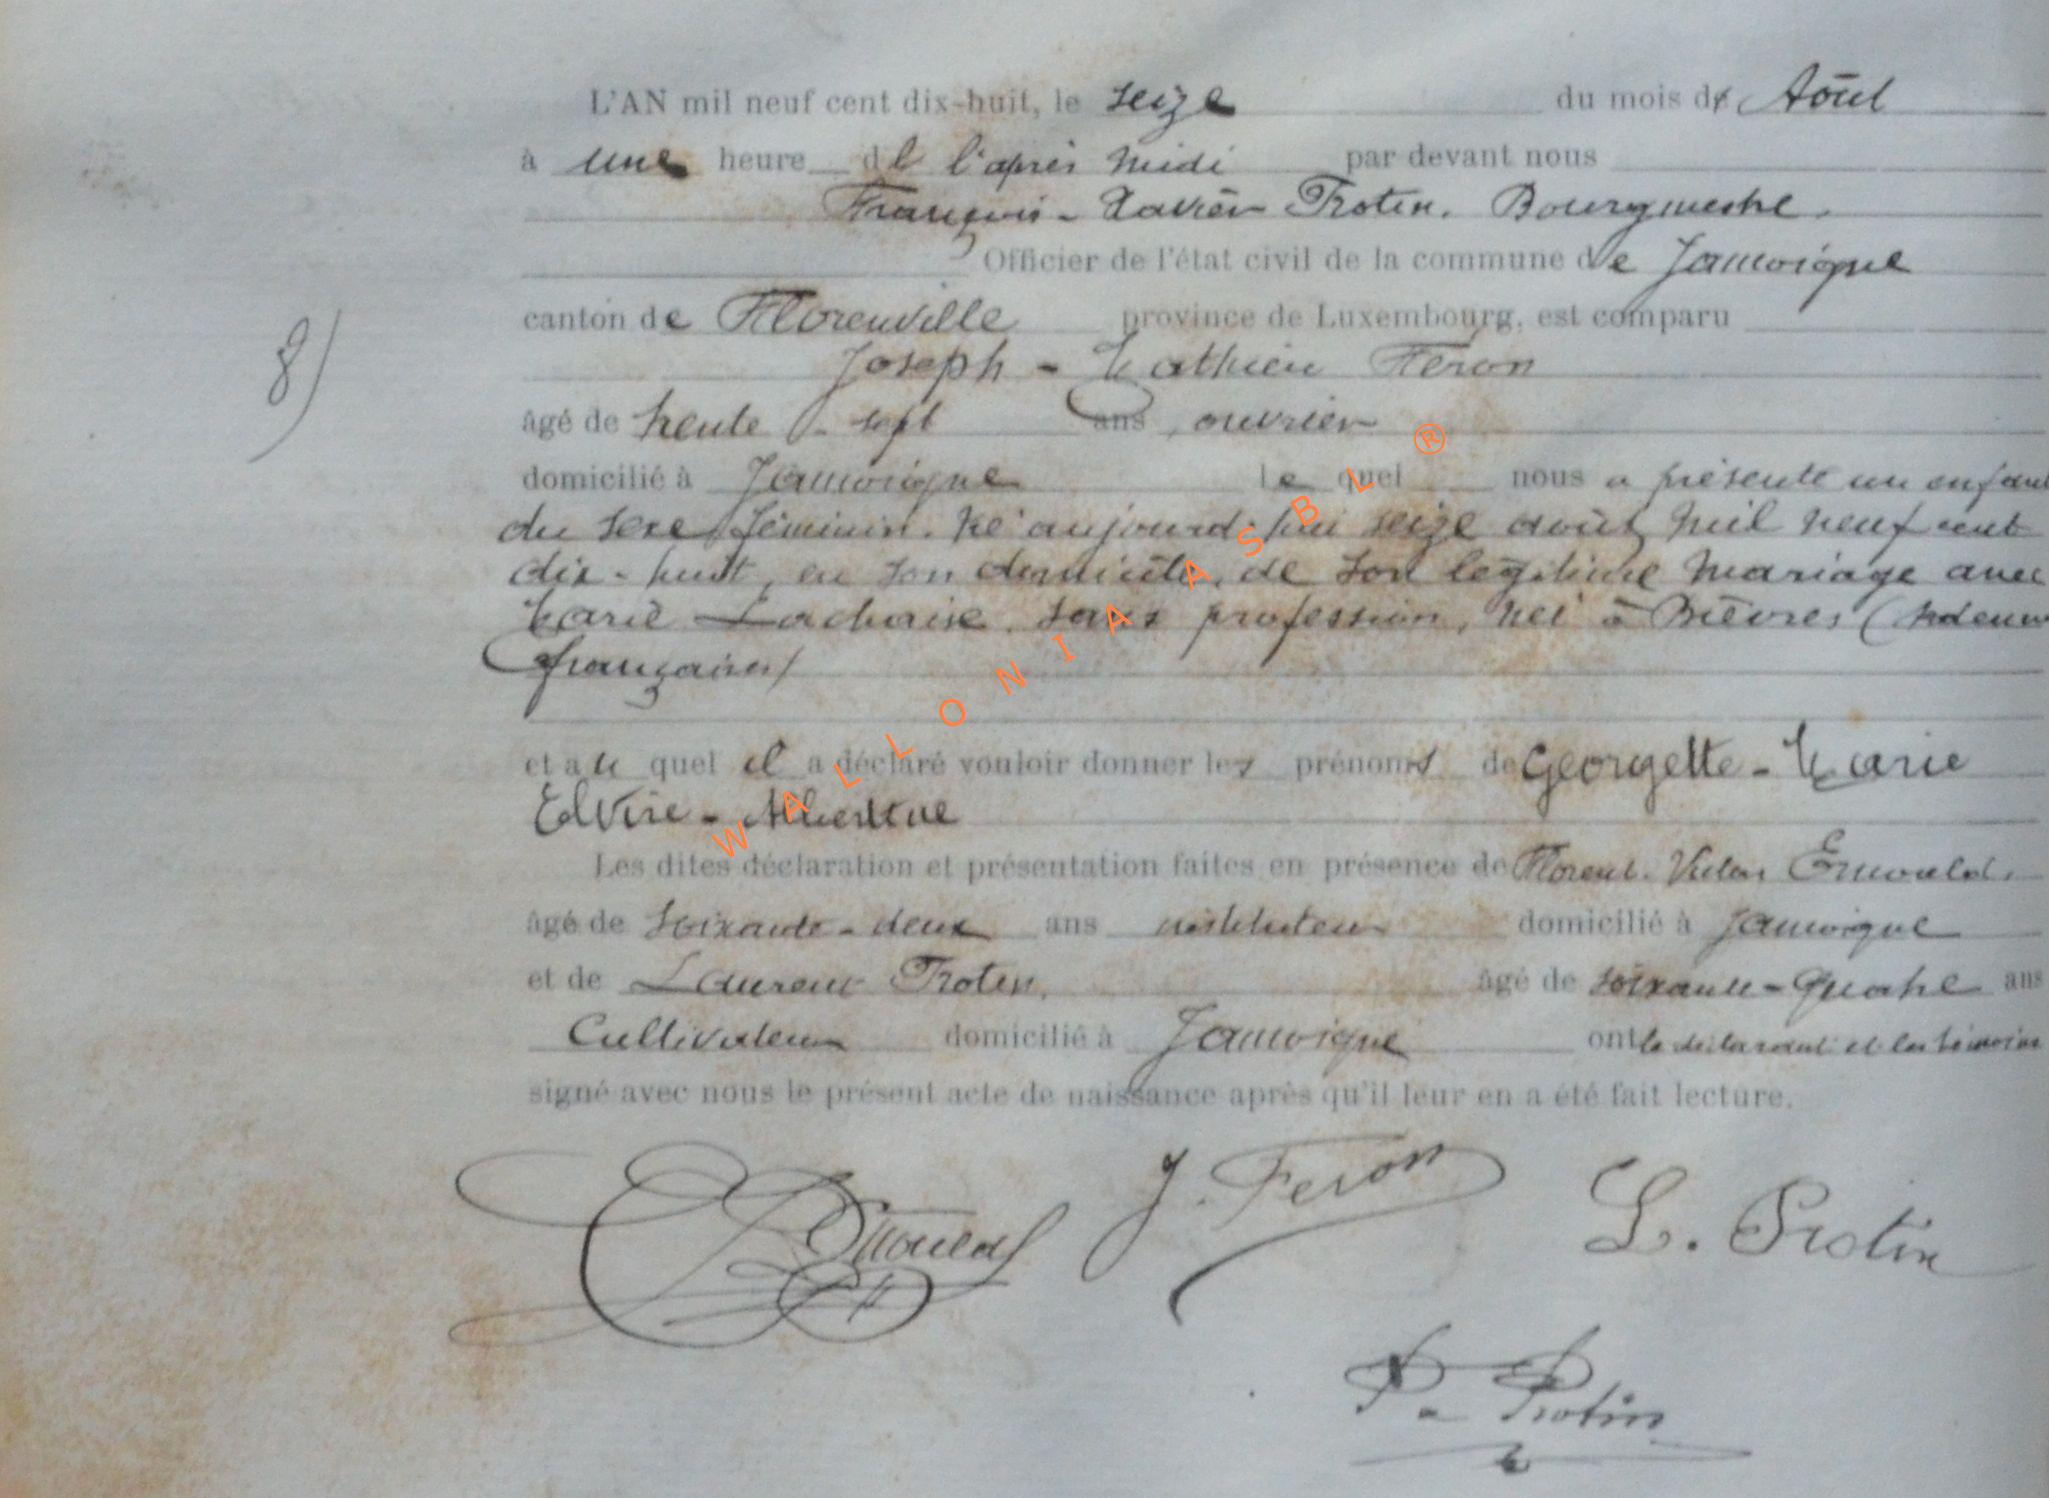 L'AN mil neuf cent dix-huit, le seize du mois de Août
à une heure de l'après midi par devant nous
François-Xavier Protin. Bourgmestre.
Officier de l'état civil de la commune de Jamoigne
canton de Florenville province de Luxembourg, est comparu
8) Joseph - Mathieu Feron
âgé de trente-sept ans, ouvrier
domicilié à Jamoigne lequel nous a présenté un enfant
du sexe féminin. né aujourd'hui seize août mil neuf cent
dix-huit, en son domicile, de son légitime mariage avec
Marie Lachaise. sans profession, née à Bièvres (Ardennes
françaises)
et au quel il a déclaré vouloir donner les prénoms de Georgette - Marie
Elvire - Albertine
Les dites déclaration et présentation faites en présence de Florent. Victor
âgé de soixante-deux ans instituteur domicilié à Jamoigne
et de Laurent Protin, âgé de soixante-quatre ans
Cultivateur domicilié à Jamoigne ont le déclarant et les témoins
signé avec nous le présent acte de naissance après qu'il leur en a été fait lecture.
J. Feron
L. Protin
Protin
WALLONIA ASBL ®